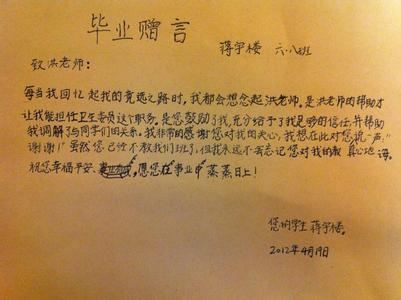 毕业赠言
蒋宇楼 六.八班
致洪老师:
每当我回忆起我的竞选之路时,我都会想念起洪老师,是洪老师的帮助才
让我能担任卫生委员这个职务。是您鼓励了我,充分给予了我足够的信任,并帮助
我调解了与同学们的关系。我非常的感谢您对我的关心,我想在此对您说一声
“谢谢!”虽然您已经不教我们班了,但我永远不会忘记您对我的教 真心地 诲。
祝您幸福平安、愿您在事业中蒸蒸日上!
您的学生 蒋宇楼。
2012年4月19日